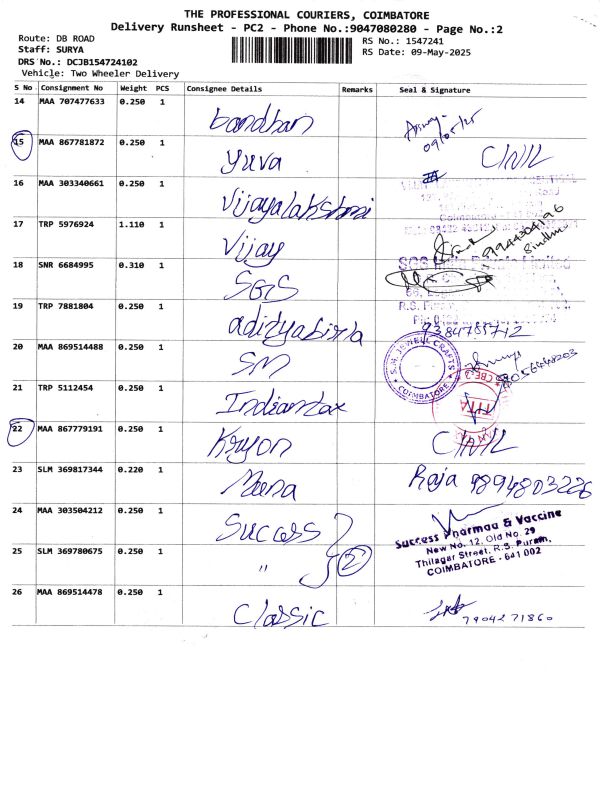 THE PROFESSIONAL COURIERS, COIMBATORE
Delivery Runsheet - PC2 - Phone No.:9047080280 - Page No.:2
Route: DB ROAD
Staff: SURYA
DRS No.: DCJB154724102
Vehicle: Two Wheeler Delivery
RS No.: 1547241
RS Date: 09-May-2025
S No Consignment No Weight PCS Consignee Details Remarks Seal & Signature
14 MAA 707477633 0.250 1 bandhan 09/05/25
15 MAA 867781872 0.250 1 Yuva C/N/L
16 MAA 303340661 0.250 1 Vijayalakshmi
17 TRP 5976924 1.110 1 Vijay
18 SNR 6684995 0.310 1 SGS
19 TRP 7881804 0.250 1 adityabirla
20 MAA 869514488 0.250 1 SM S.M. JEWELL CRAFTS COIMBATORE
21 TRP 5112454 0.250 1 Indiantax
22 MAA 867779191 0.250 1 Kryon C/N/L
23 SLM 369817344 0.220 1 Meena Raja 9894803226
24 MAA 303504212 0.250 1 Success
Success Pharmaa & Vaccine
New No. 12, Old No. 29
Thilagar Street, R.S. Puram,
COIMBATORE - 641 002
25 SLM 369780675 0.250 1 " 2
26 MAA 869514478 0.250 1 Classic 7904271860